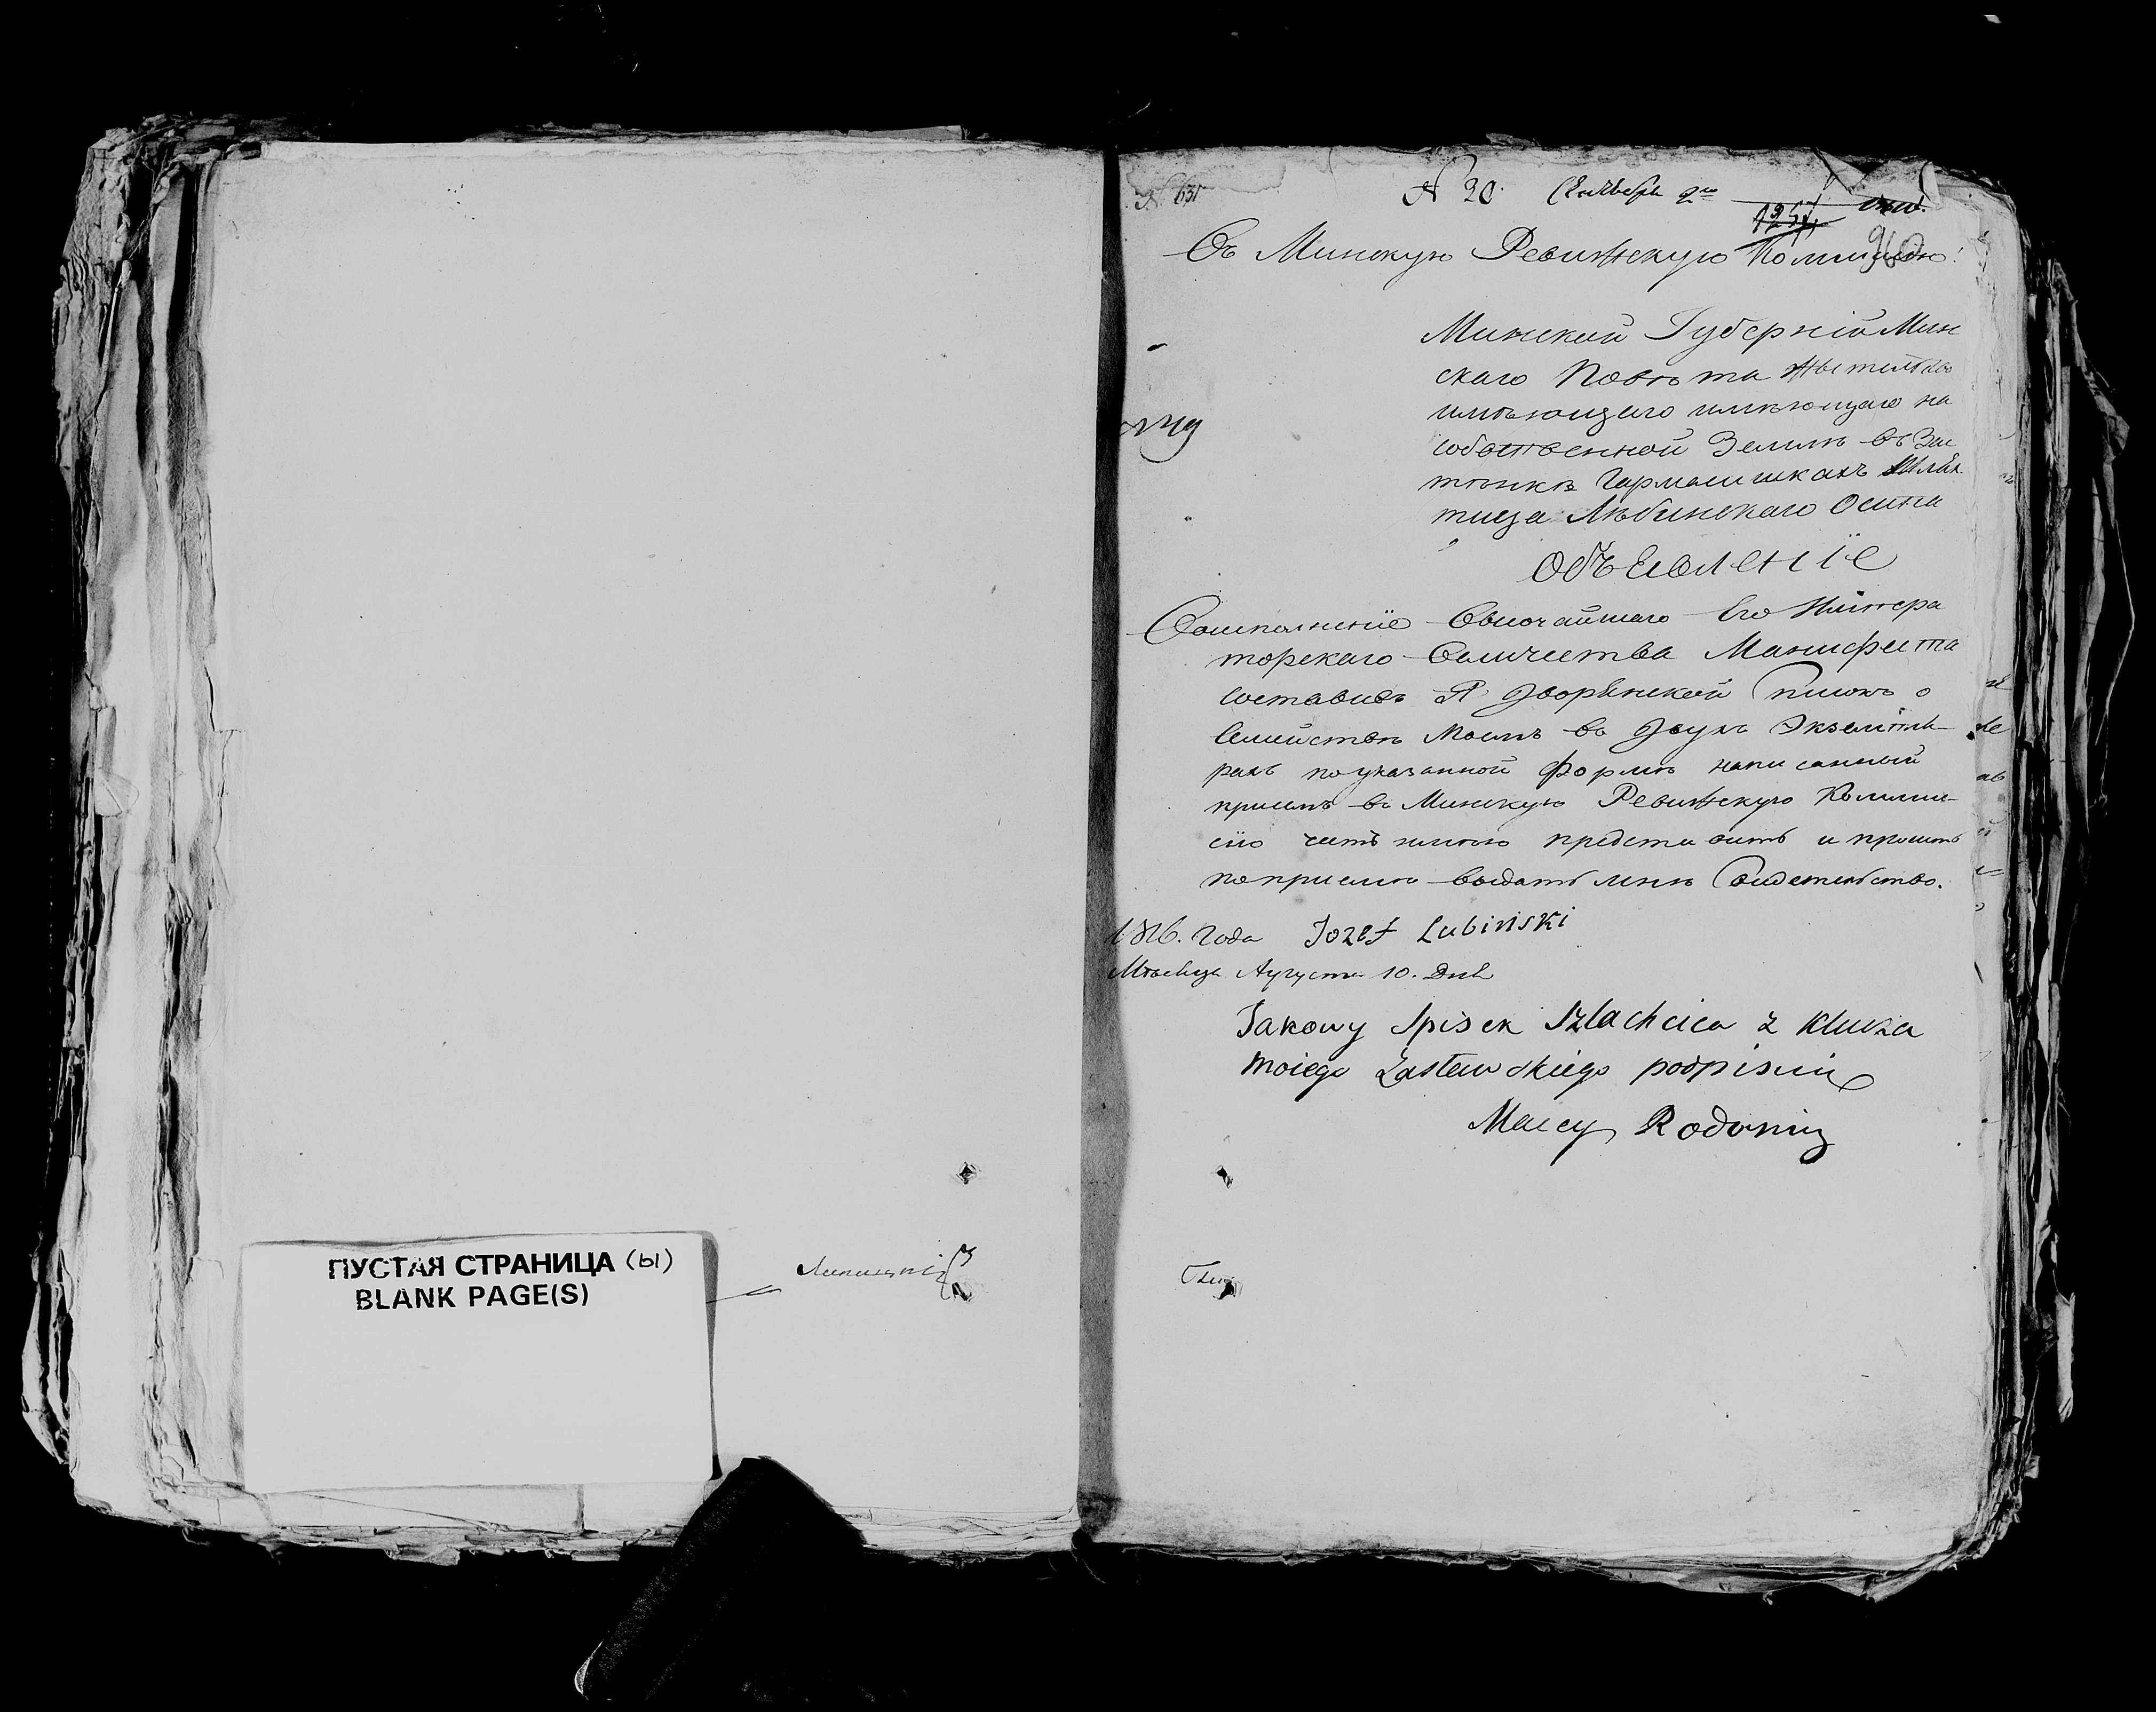 ПУСТАЯ СТРАНИЦА (ы)
BLANK PAGE(S)
№ 631
№ 20. Сентября 2го
1257
960
Въ Минскую Ревижскую Коммисію!
Минской Губерніи Мин
скаго Повѣта жительство
имѣющего имѣющаго на
собственной Землѣ въ Зас
тѣнкѣ Гармошшкахъ Шлях
тица Любинскаго Осипа
Объевленіе
Воисполненіе Высочайшаго Его Импера
торскаго Величества Манифеста
составивъ Я Дворянской Списокъ о
Семействѣ Моемъ въ Двухъ Экземпля-
рахъ по указанной Формѣ написанный
при семъ въ Минскую Ревижскую Коммис-
сію честь имѣю представить и просить
по приемѣ выдать мнѣ Свидетельство.
1816. Года Jozef Lubiński
Мѣсяца Августа 10. Дня
Takowy Spisek Szlachcica z Klucza
moiego Zasławskiego podpisuię
Macey